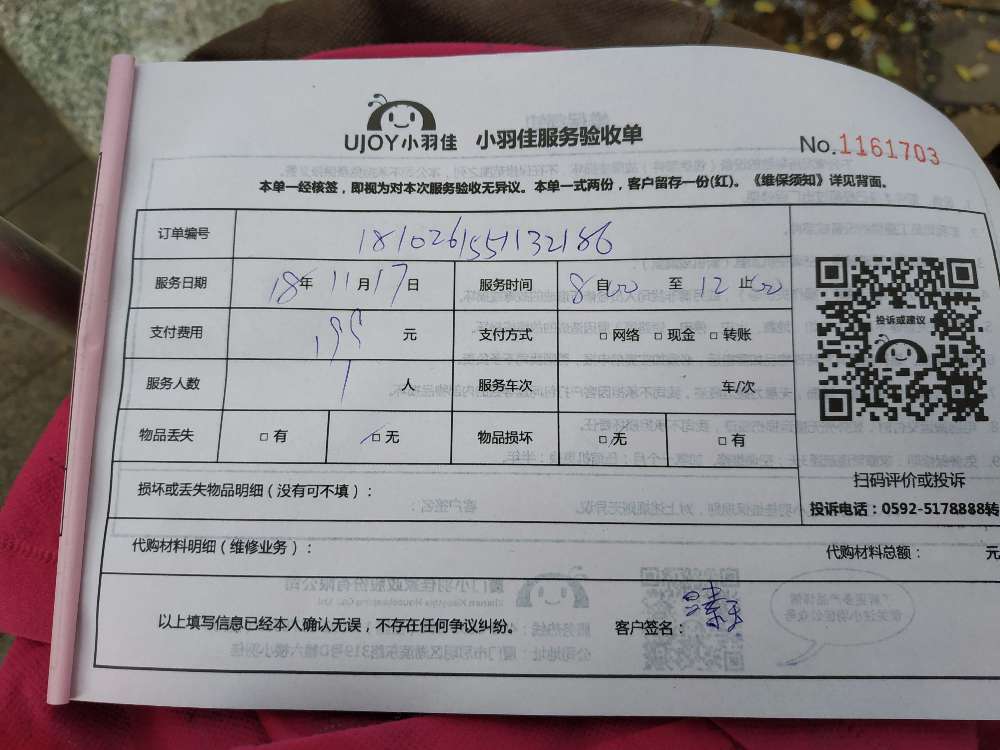 UJOY小羽佳 小羽佳服务验收单
No.1161703
本单一经核签，即视为对本次服务验收无异议。本单一式两份，客户留存一份(红)。《维保须知》详见背面。
订单编号 181026155132186
服务日期 18年 11月17日 服务时间 8自00 至 12止00
支付费用 199 元 支付方式 □ 网络 □ 现金 □ 转账
服务人数 1 人 服务车次 车/次
物品丢失 □ 有 □ 无 物品损坏 □ 无 □ 有
投诉或建议
扫码评价或投诉
投诉电话：0592-5178888转
损坏或丢失物品明细（没有可不填）：
代购材料明细（维修业务）： 代购材料总额： 元
以上填写信息已经本人确认无误，不存在任何争议纠纷。 客户签名：